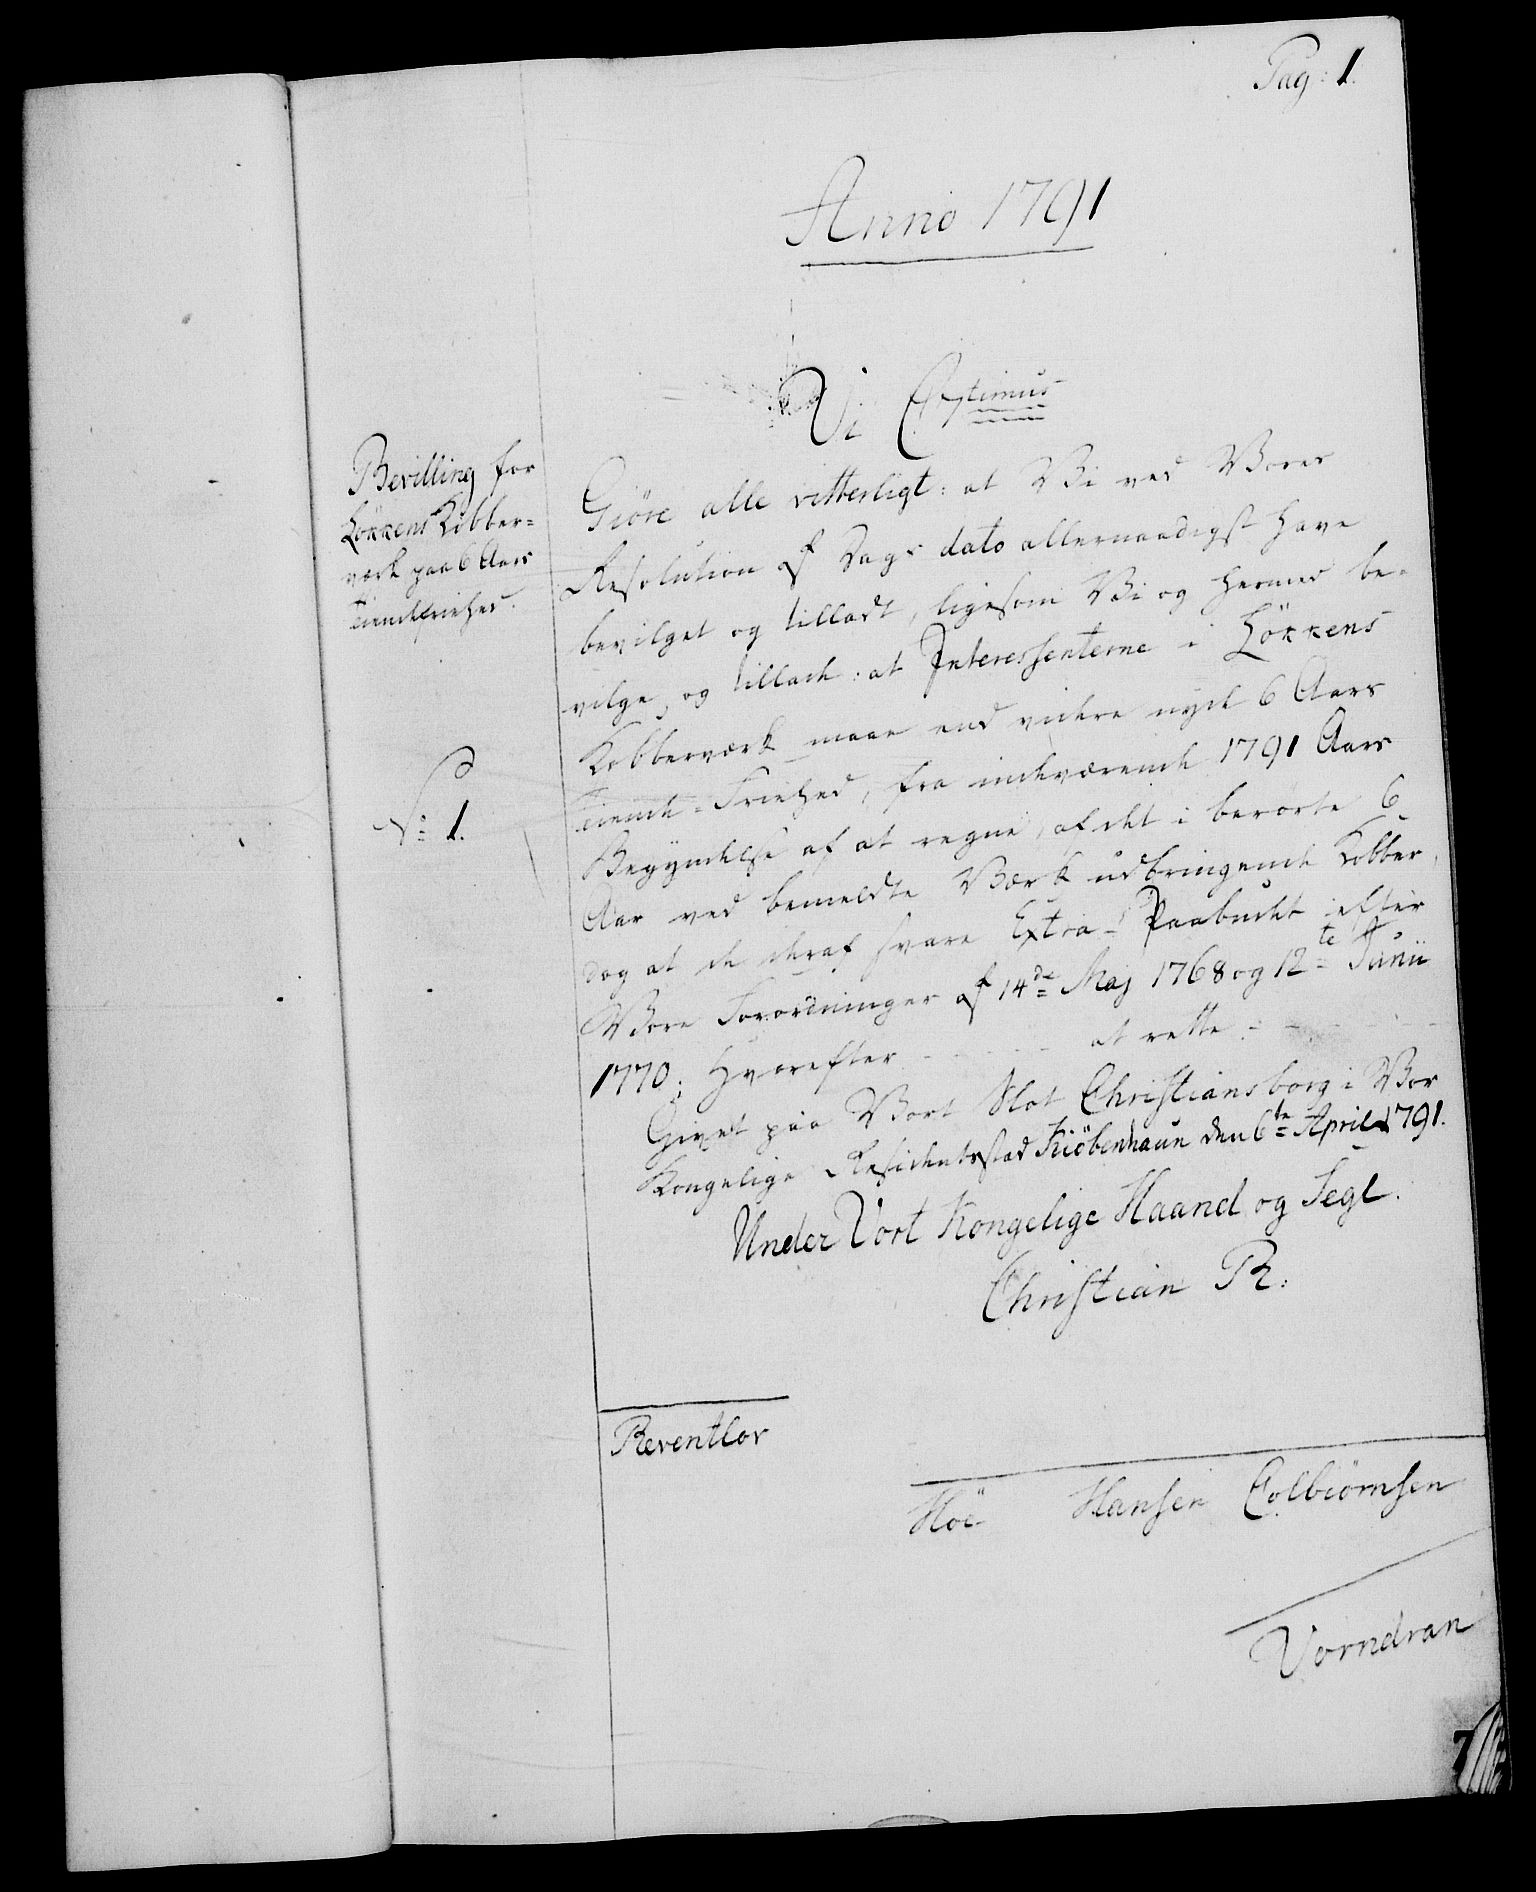 Pag: 1.
Anno 1791
Vi C 7timus
Bevilling for
Løkkens Kobber=
værk paa 6 Aars
Tiendefriehed.
No 1.
Giöre alle vitterligt: at Vi ved Vores
Resolution af Dags dato allernaadigst have
bevilget og tilladt, ligesom Vi og hermed be-
vilge, og tillade: at Interessenterne i Løkkens
Kobberværk maae end videre nyde 6 Aars
Tiende=Friehed, fra indeværende 1791 Aars
Begyndelse af at regne, af det i berørte 6
Aar ved bemeldte Værk udbringende Kobber,
dog at de deraf svare Extra-Paabudet efter
Vore Forordninger af 14de Maj 1768 og 12te Junii
1770. Hvorefter - - - - at rette - - - -
Givet paa Vort Slot Christiansborg i Vor
Kongelige Residentsstad Kiöbenhaun den 6te April 1791.
Under Vort Kongelige Haand og Segl.
Christian R:
Reventlov
Höe Hansen Colbiörnsen
Vorndran